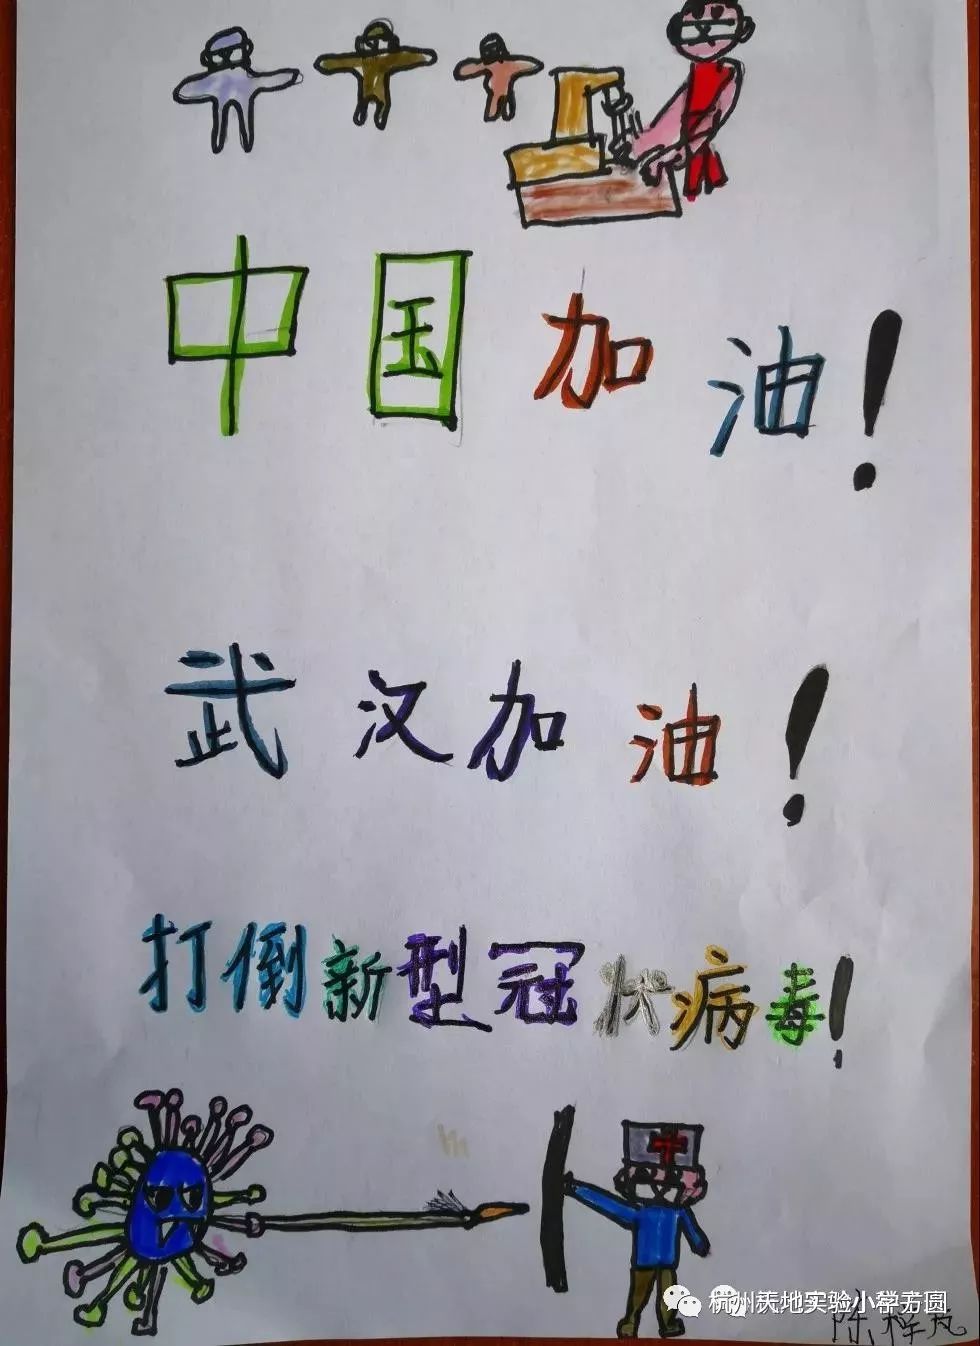 中国加油！
武汉加油！
打倒新型冠状病毒！
杭州天地实验小学方圆